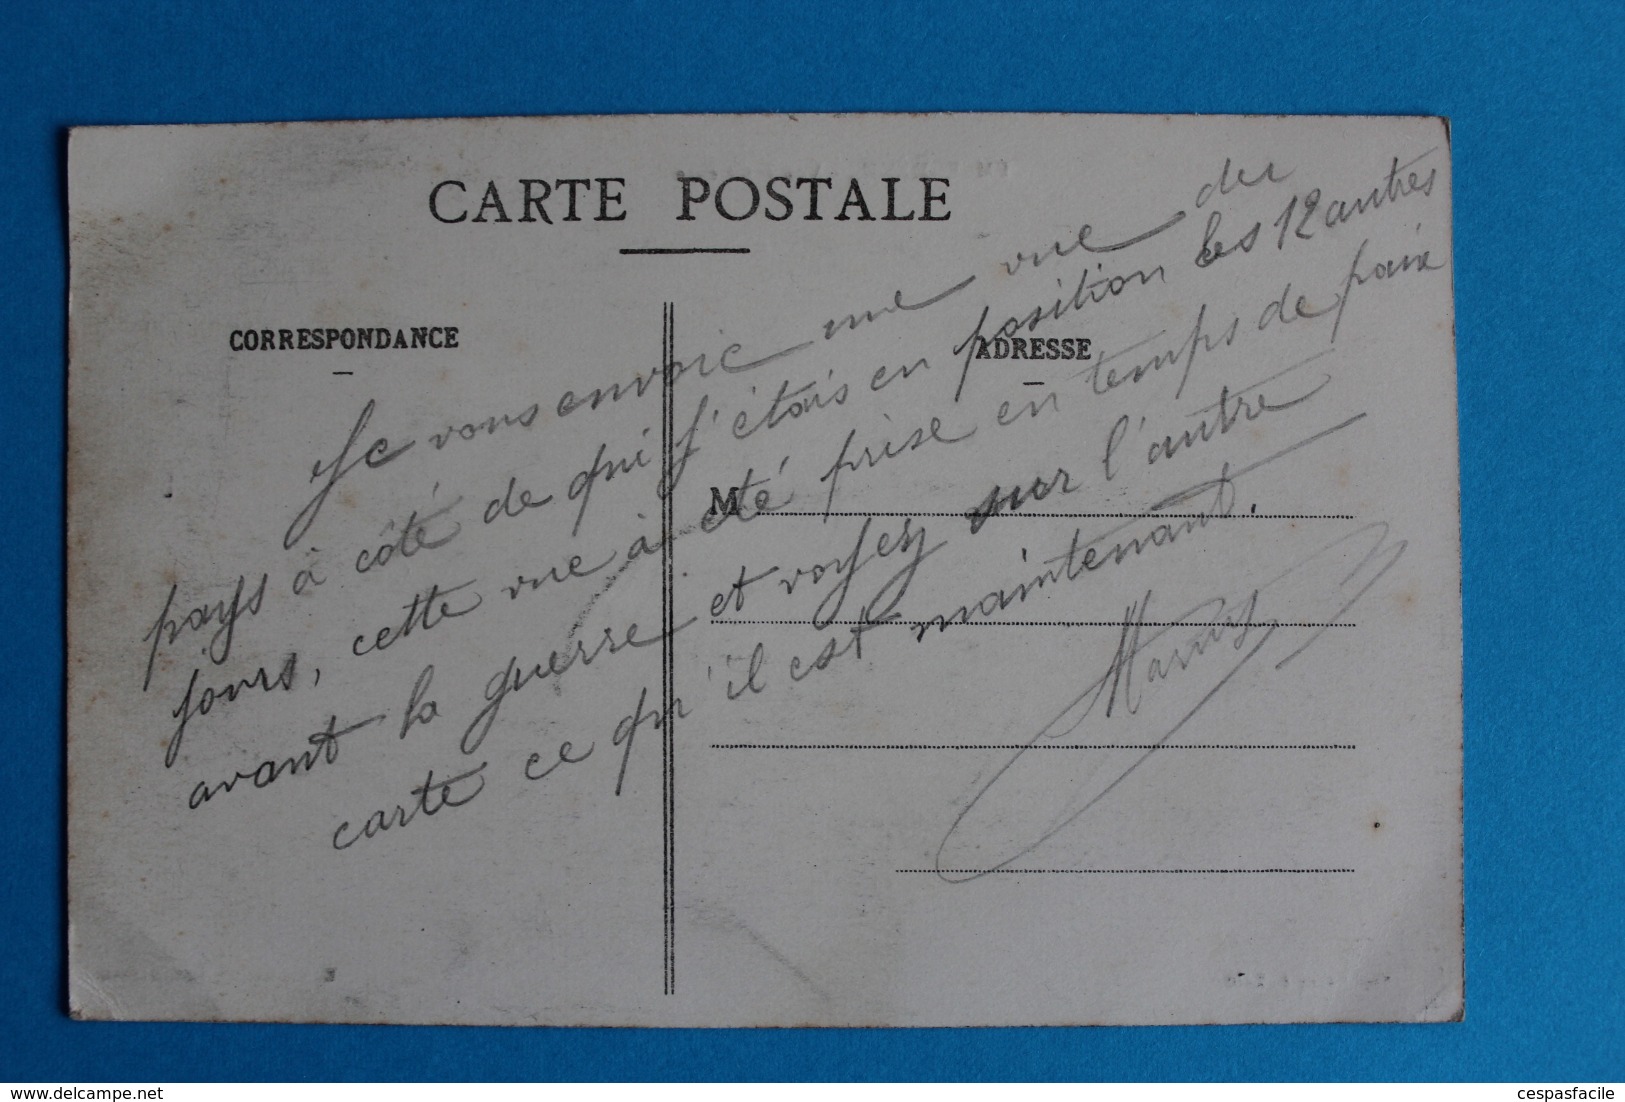 CARTE POSTALE
CORRESPONDANCE
ADRESSE
M
Je vous envoie une vue du
pays à côté de qui j'étais en position les 12 autres
jours, cette vue à été prise en temps de paix
avant la guerre et voyez sur l'autre
carte ce qu'il est maintenant.
Marius
delcampe.net
cespasfacile